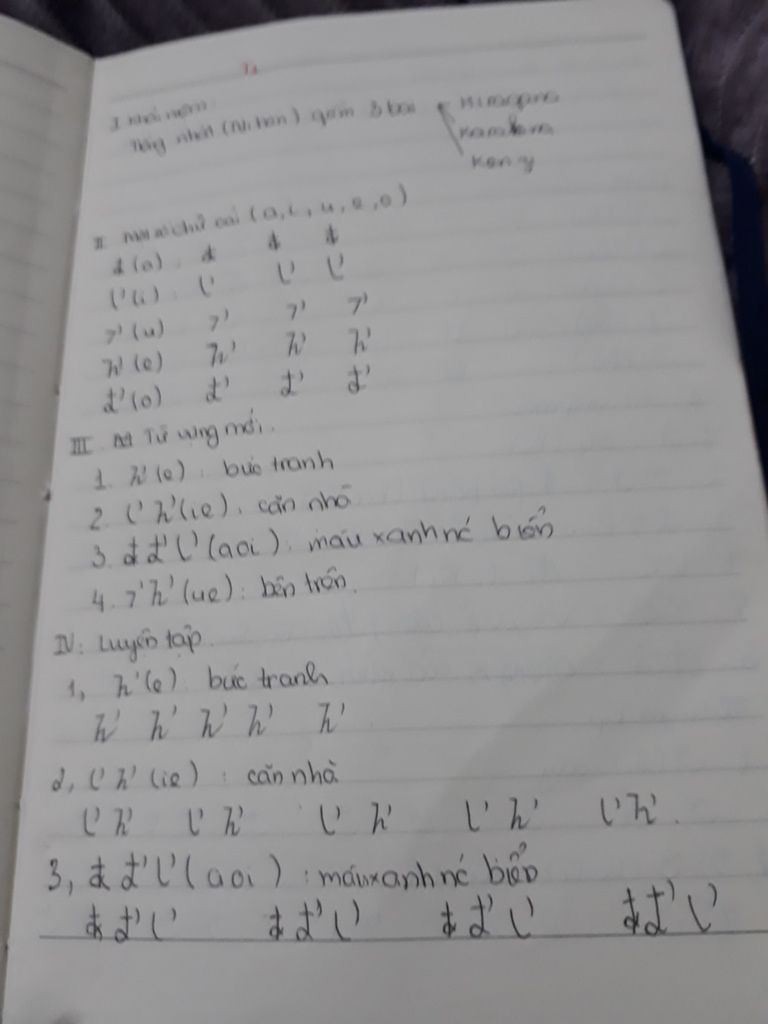 I. Khái niệm
Tiếng nhật (Ni hon) gồm 3 loại Hiragana
Kanji
II. chữ cái (a, i, u, e, o)
あ (a) : あ あ あ
い (i) : い い い
う (u) う う う
え (e) え え え
お (o) お お お
III Từ vựng mới.
1. え (e) : bức tranh
2. いえ (ie) : căn nhà
3. あおい (aoi) : màu xanh nc biển
4. うえ (ue) : bên trên.
IV: Luyện tập.
1, え (e) : bức tranh
え え え え え
2, いえ (ie) : căn nhà
いえ いえ いえ いえ いえ.
3, あおい (aoi) : màu xanh nc biển
あおい あおい あおい あおい